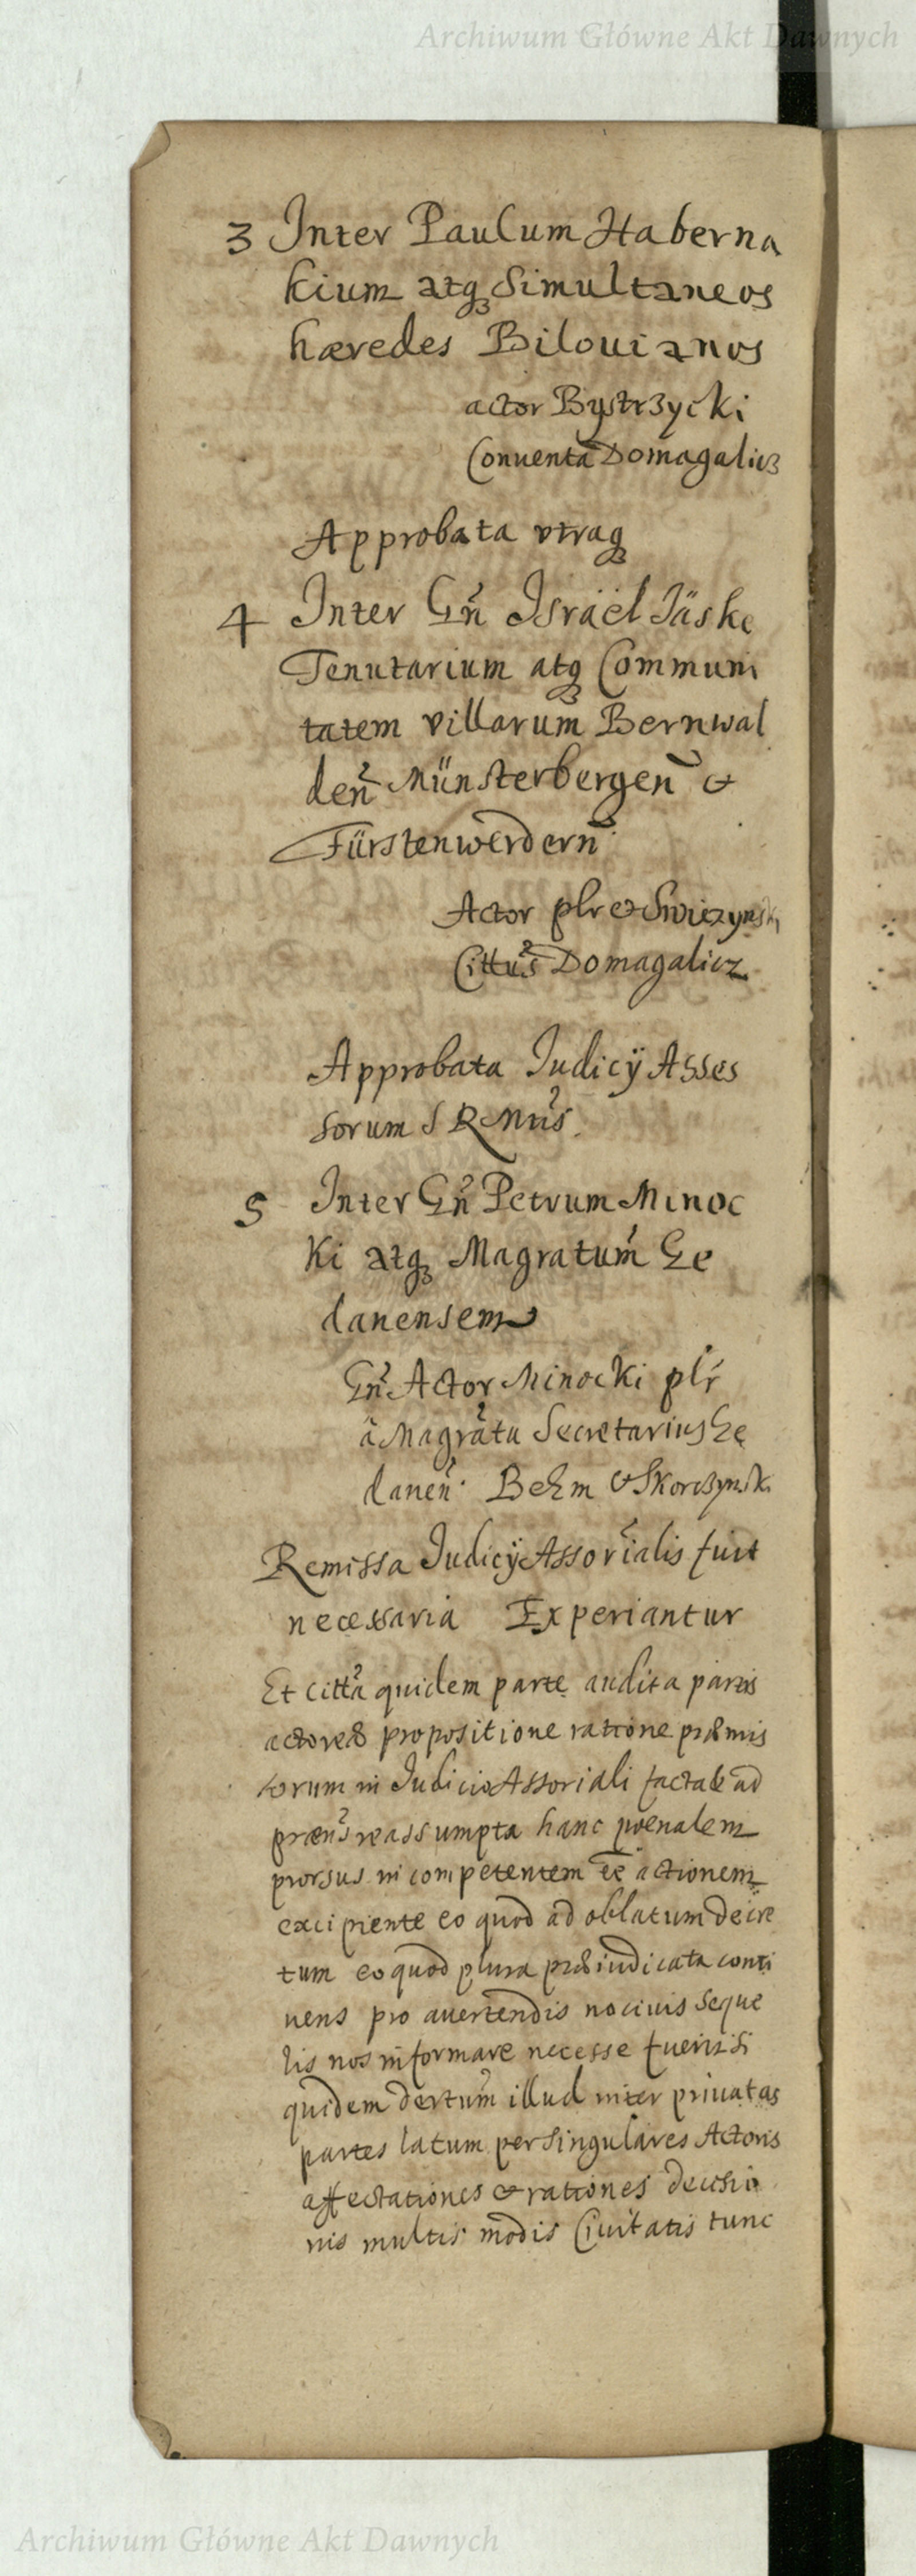 Archiwum Główne Akt Dawnych
3 Inter Paulum Haberna
kium atqꝫ Simultaneos
hæredes Bilouianos
actor Bystrzycki
Conuenta Domagalicz
Approbata vtraqꝫ
4 Inter Gn̄ Israël Jäske
Tenutarium atqꝫ Communi
tatem villarum Bernwal
den̄ Münsterbergen̄ &
Fürstenwerdern̄
Actor plr & Swiezynski
Cittus Domagalicz
Approbata Iudicÿ Asses
sorum S R Mtis
5 Inter Gn̄ Petrum Minoc
ki atqꝫ Magratum Ge
danensem
Gn̄ Actor Minocki plr
à Magratu Secretarius Ge
danen̄ Behm & Skorczynsk
Remissa Iudicÿ Assorialis fuit
necessaria Experiantur
Et citta quidem parte audita partis
actoreæ propositione ratione præmis
sorum in Iudicio Assoriali factaꝫ ad
præns reassumpta hanc pœnalem
prorsus incompetentem ēē actionem
excipiente eo quod ad oblatum decre
tum eo quod plura præiudicata conti
nens pro auertendis nociuis seque
lis nos informare necesse fuerit si
quidem dertum illud inter priuatas
partes latum per singulares Actoris
affectationes & rationes decisio
nis multis modis Ciuitatis tunc
Archiwum Główne Akt Dawnych